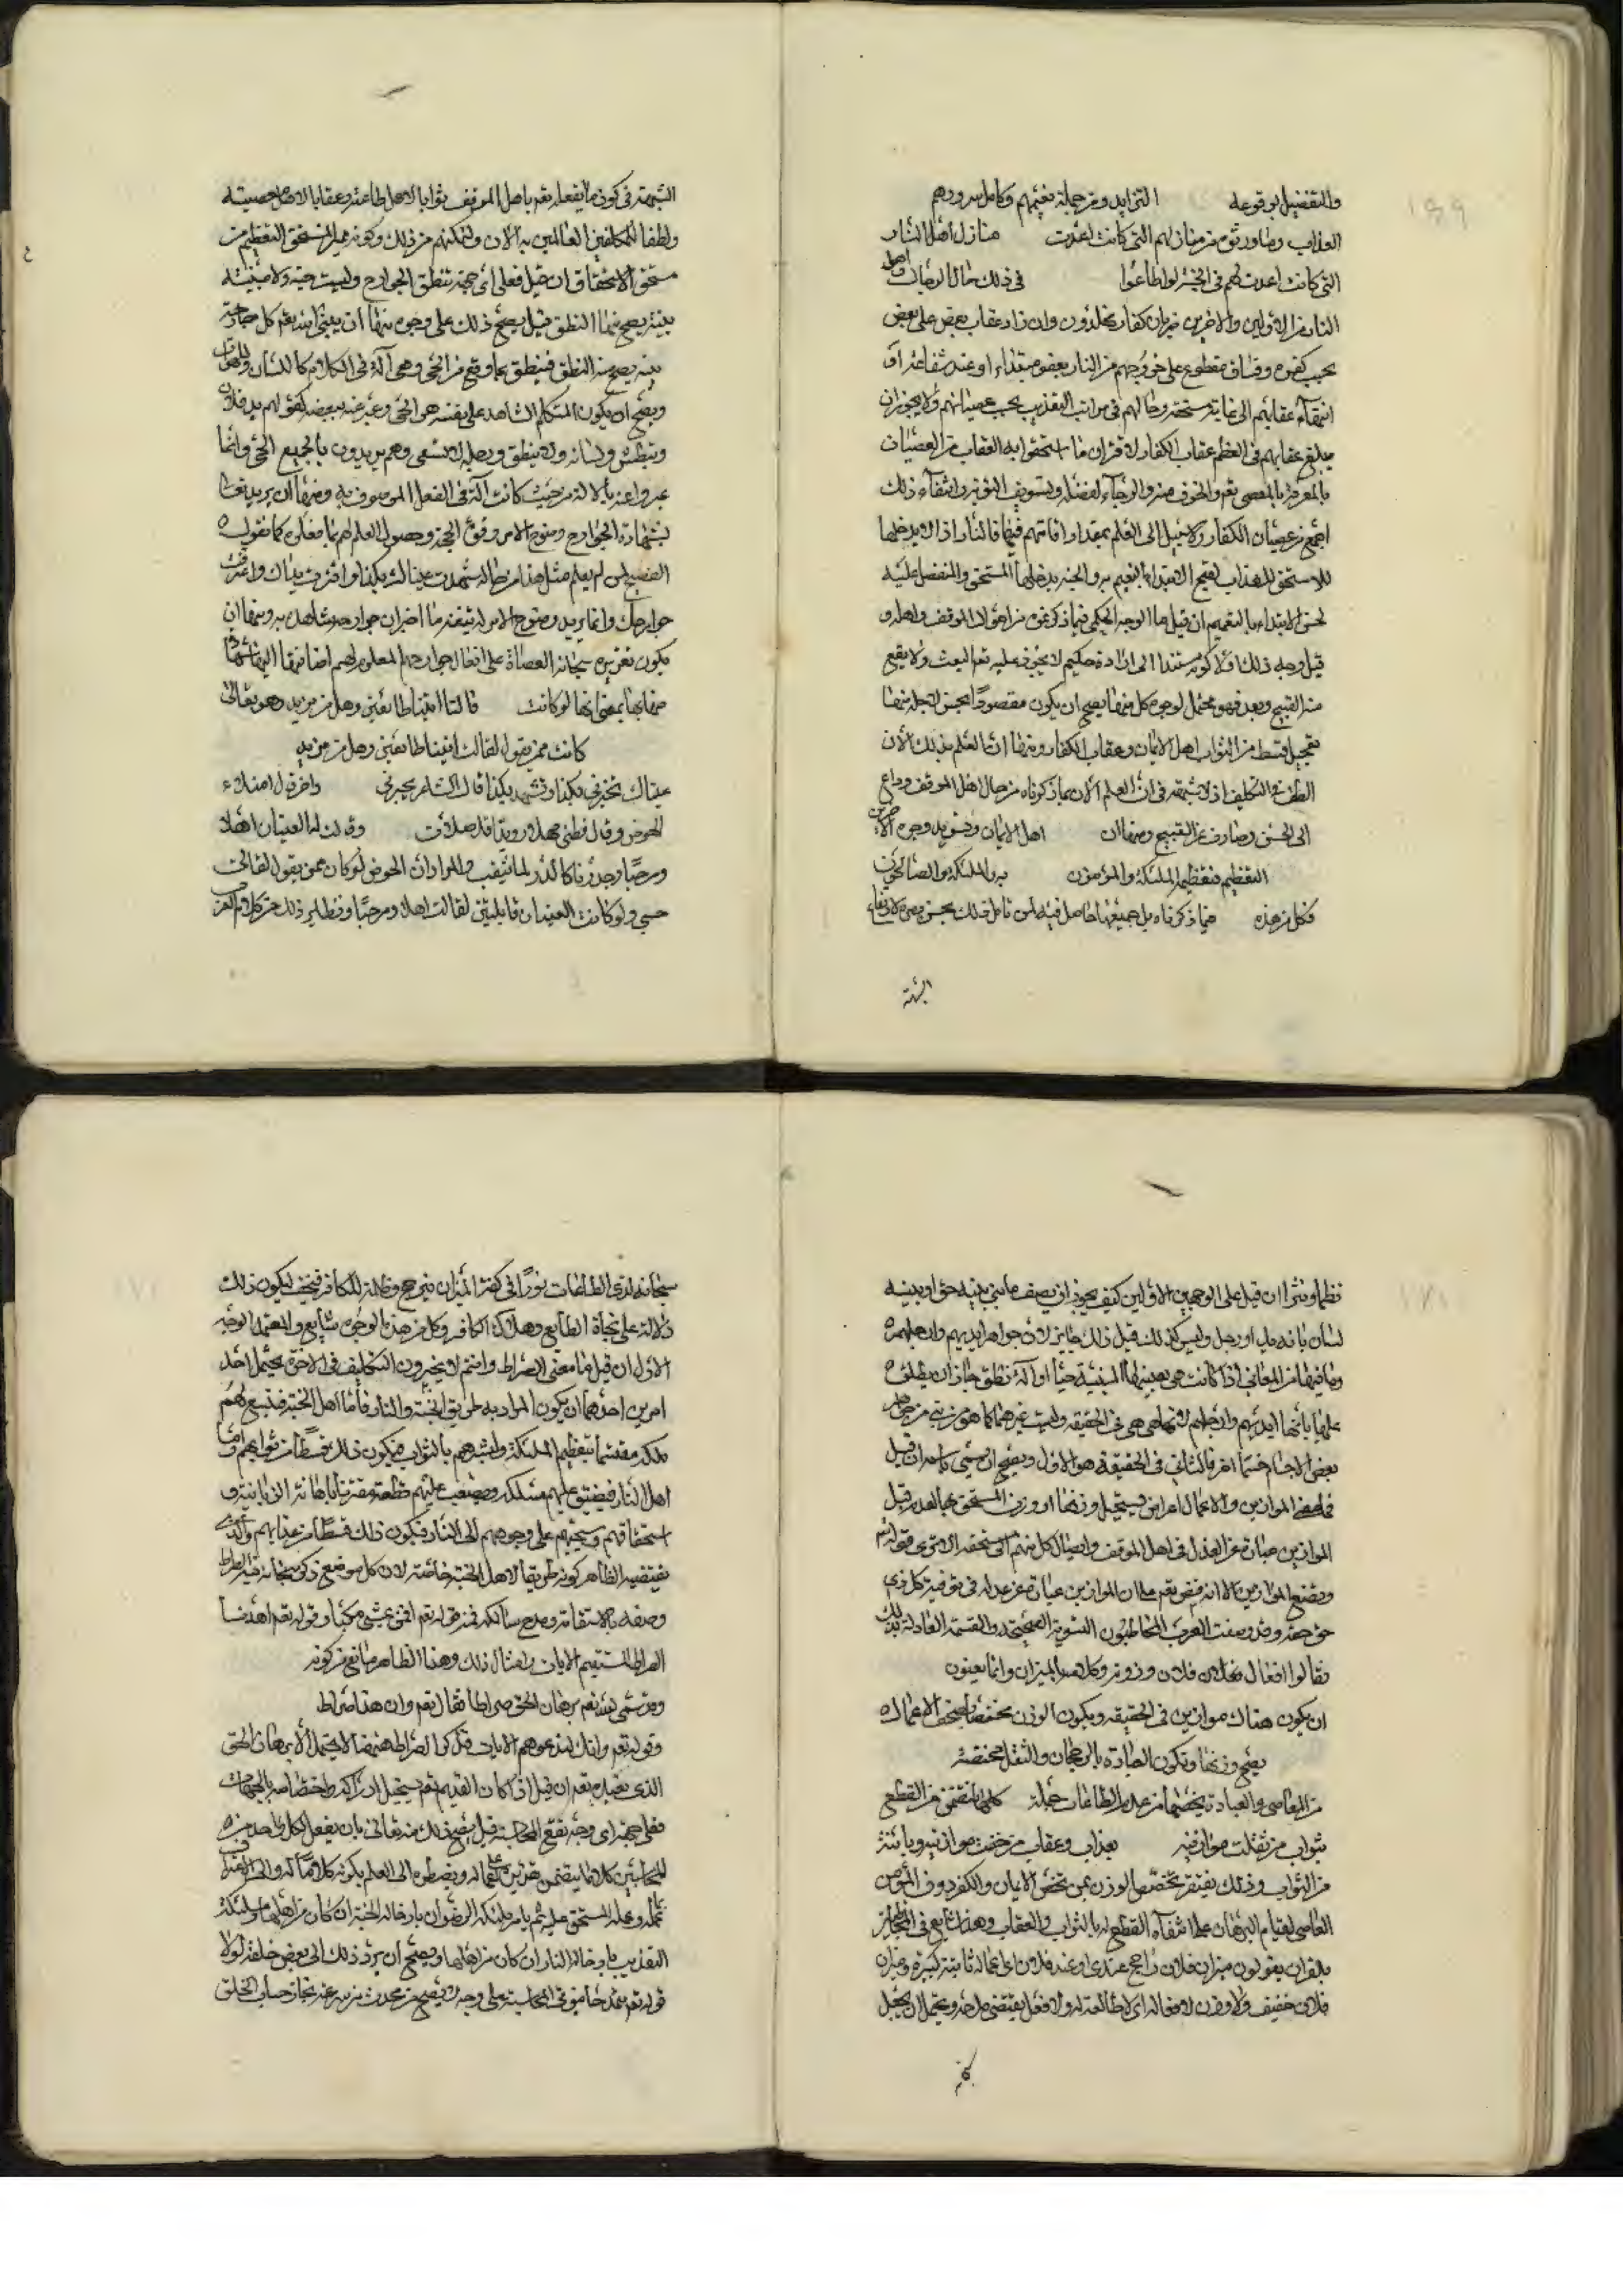 والتفضيل بوقوعه التزايد ومن جملة نعيمهم وكامل سرورهم
العذاب وما ورثوه من منازلهم التي كانت اعدت منازل اهل النار
التي كانت اعدت لهم في الجنة لو اطاعوا في ذلك حال الدرجات واهل
النار من الاولين والاخرين ضربان كفار يخلدون وان زاد عقاب بعض على بعض
بحسب كفره وفساق مقطوع على خروجهم من النار بعفو مبتداء او عند شفاعة او
انتهاء عقابهم الى غاية مستحقه وحالهم في مراتب التعذيب بحسب عصيانهم ولا يجوز ان
يبلغ عقابهم في العظم عقاب الكفار لاقتران ما استحقوا به العقاب من العصيان
بالمعرفة بالمعصي تعم والخوف منه والرجاء لفضله وتسويف التوبة وانتفاء ذلك
اجمع من عصيان الكفار ولا سبيل الى العلم بمقدار اقامتهم فيها فالنار اذا لا يدخلها
الا مستحق للعذاب لقبح الابتداء به والجنة يدخلها المستحق والمتفضل عليه
لحسن الابتداء بالنعيم ان قيل ما الوجه الحكمي فيما ذكرتموه من اهوال الموقف واهله و
قيل وجه ذلك اولا كونه مستندا الى ارادة حكيم لا يجوز عليه تعم العبث ولا يقع
منه القبيح وبعد فهو محتمل لوجوه كل منها يصح ان يكون مقصودا يحسن لاجله منها
تعجيل قسط من الثواب اهل الايمان وعقاب الكفار ومنها ان العلم بذلك الان
لطف في التكليف اذ لا شبهة في ان العلم الان بما ذكرناه من حال اهل الموقف وداع
الى الحسن وصارف عن القبيح ومنها ان اهل الايمان وتسويد وجوه الاخرين
التعظيم فتعظيم الملئكة والمؤمنون به والملئكة والصالحون
فكل من هذه مما ذكرناه بل جميعها حاصل فيه لمن تامل ذلك يحسن وجوده لارتفاع
الشبهة
الشبهة في كون ما يفعله تعم باهل الموقف ثوابا لاهل طاعته وعقابا لاهل معصيته
ولطفا للمكلفين العالمين به الان وتمكنهم من ذلك وكونه مميزا لمستحق التعظيم من
مستحق الاستخفاف ان قيل فعلى اي وجه تنطق الجوارح وليست حية ولا مبنية
بنية يصح منها النطق قيل يصح ذلك على وجوه منها ان يبني الله تعم كل جارحة
بنية يصح منه النطق فينطق بما وقع من الحي وهي آلة في الكلام كاللسان واللهوات
ويصح ان يكون المتكلم الشاهد على نفسه هو الحي وعبر عنه ببعضه كقولهم يد فلان
وتبطش ولسانه ولا ينطق ورجله لا تسعى وهم يريدون بالجميع الحي وانما
عبروا عنه بالالة من حيث كانت آلة في الفعل الموصوف به ومنها ان يريد تعالى
بشهادة الجوارح وضوح الامر وقوة الحجة وحصول العلم لهم بما فعلوه كما يقول
الفصيح لمن لم يعلم مثل هذا من حاله شهدت عيناك بكذا واقترفت يداك واعترفت
جوارحك وانما يريد وضوح الامر له ما اخبر ان جوارحه شاهدة به ومنها ان
يكون تعزيره سبحانه العصاة على افعال جوارحهم المعلومة لهم اضافها اليها شهادة
منها بمعنى انها لو كانت قالتا اتينا طائعين وهل من مزيد وهو تعالى
كانت ممن يقول لقالت اتينا طائعين وهل من مزيد
عيناك تخبرني بكذا وتشهد بكذا قال الشاعر يخبرني واخر قال امتلاء
الحوض وقال قطني مهلا رويدا قد ملات وقالت له العينان اهلا
ومرحبا وحدرتا كالدر لما يثقب والمراد ان الحوض لو كان ممن يقول لقال
حسبي ولو كانت العينان قابلتين لقالت اهلا ومرحبا ونظاير ذلك من كلام العرب
نظما ونثرا ان قيل على الوجهين الاولين كيف يجوز ان يصف ما بني بنية حي او بنية
لسان بانه يد او رجل وليس كذلك قيل ذلك جايز لان جواهر ايديهم وارجلهم
وما فيها من المعاني اذا كانت هي بعينها المبنية حيا او آلة نطق جاز ان يطلق
عليها بانها ايديهم وارجلهم لانها هي هي في الحقيقة وليست غيرها كما هو من بني من جواهر
بعض الاجسام جسما اخر فالثاني في الحقيقة هو الاول ان قيل
فما هي الموازين والاعمال اعراض يستحيل وزنها او وزن المستحق بها قيل
الموازين عبارة عن العدل في اهل الموقف وايصال كل منهم الى مستحقه الا ترى قوله تعم
ونضع الموازين الاية فنص تعم على ان الموازين عبارة عن عدله في توفية كل ذي
حق حقه وقد وصفت العرب المخاطبون التسوية الصحيحة والقسمة العادلة بذلك
فقالوا افعال فلان وزونة وكلامه بالميزان وانما يعنون
ان يكون هناك موازين في الحقيقة ويكون الوزن مختصا بصحف الاعمال
يصح وزنها وتكون العبادة بالرجحان والثقل مختصة
من المعاصي والعبادة بخفتها من عدم الطاعات جملة كلها تقتضي القطع
بثواب من ثقلت موازينه بعذاب وعقاب من خفت موازينه
من الثواب وذلك يفتقر تخصيص الوزن بمن محض الايمان والكفر دون المؤمن
العاصي لقيام البرهان على انتفاء القطع له بالثواب والعقاب وهذا شايع في المجاز
يقولون ميزان فلان راجح عندي او عند فلان اي اعماله ثابتة كثيرة وميزان
فلان خفيف ولا وزن لافعاله اي لا طائعة له ولا فعل يقتضي مدحه ويحتمل ان يجعل
سبحانه لذي الطاعات نورا في كفة الميزان فيرجح وظلمة للكافر فيخف ليكون ذلك
دلالة على نجاة الطائع وهلاك الكافر وكل من هذه الوجوه شايع والمعتمد الوجه
الاول ان قيل ما معنى الصراط وانتم لا تجيزون التكليف في الاخرة قيل يحتمل احد
امرين احدهما ان يكون المراد به طريق الجنة والنار فاما اهل الجنة فيتسع لهم
ملكه مقترنا بتعظيم الملئكة وتبشرهم بالثواب فيكون ذلك قسطا من ثوابهم واما
اهل النار فيضيق عليهم مسلكه ويصعب عليهم قطعه مقترنا باهانة الزبانية و
استخفافهم وسحبهم على وجوههم الى النار فيكون ذلك قسطا من عذابهم والذي
يقتضيه الظاهر كونه طريقا لاهل الجنة خاصة لان كل موضع ذكر سبحانه فيه الصراط
وصفه بالاستقامة ومدح سالكه فمن قوله تعم افمن يمشي مكبا وقوله تعم اهدنا
الصراط المستقيم الايات وامثال ذلك وهذا الظاهر مانع من كونه
وقد سمى الله تعم برهان الحق صراطا فقال تعم وان هذا صراط
وقوله تعم وانك لتدعوهم الايات فذكر الصراط هيهنا لا يحتمل الا برهان الحق
الذي تعبد به تعم ان قيل اذا كان القديم تعم يستحيل ادراكه واختصاصه بالجهات
فعلى اي وجه تقع المحاسبة قيل يصح ذلك منه تعالى بان يفعل لكل واحد من
المحاسبين كلاما يتضمن تقريره على اعماله ويضطره الى العلم بكونه كلاما له
عمله وعلمه المستحق عليه ثم يامر ملئكة الرضوان بادخاله الجنة ان كان من اهلها وملئكة
التعذيب بادخاله النار ان كان من اهلها ويصح ان يرد ذلك الى بعض خلقه لولا